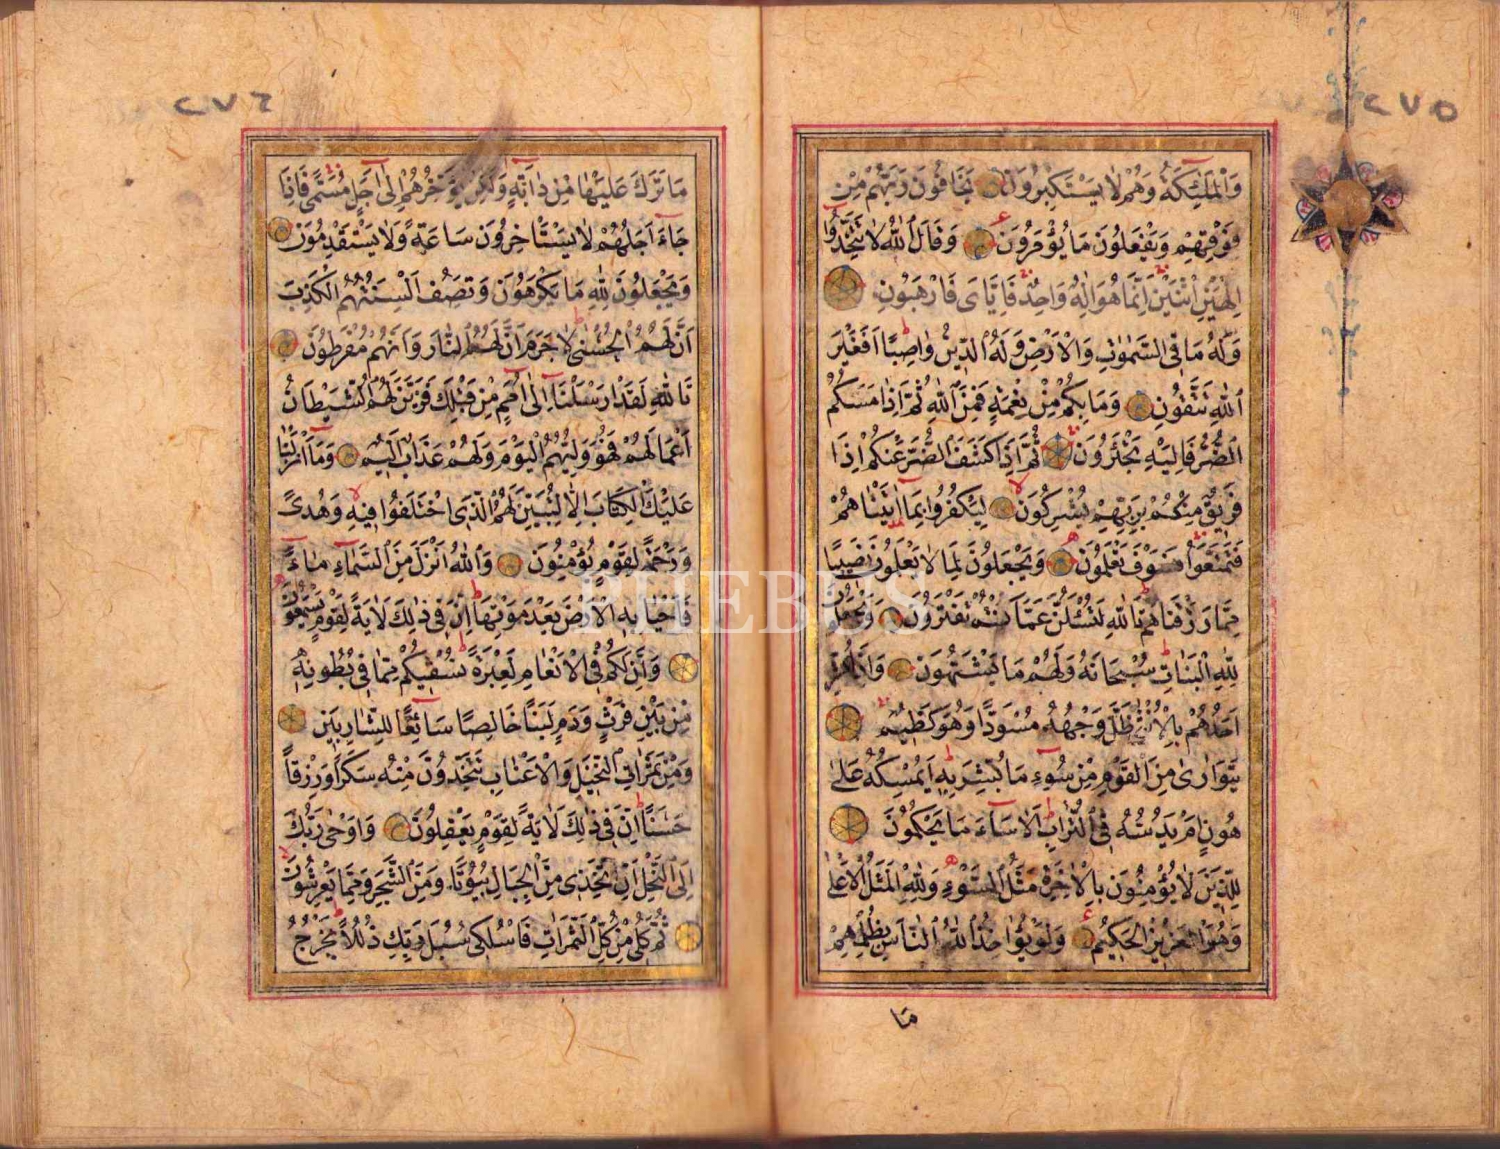 ٢٧٥
وَالْمَلٰٓئِكَةُ وَهُمْ لَا يَسْتَكْبِرُونَ يَخَافُونَ رَبَّهُمْ مِنْ
فَوْقِهِمْ وَيَفْعَلُونَ مَا يُؤْمَرُونَ وَقَالَ اللّٰهُ لَا تَتَّخِذُوا
اِلٰهَيْنِ اثْنَيْنِ اِنَّمَا هُوَ اِلٰهٌ وَاحِدٌ فَاِيَّاىَ فَارْهَبُونِ
وَلَهُ مَا فِى السَّمٰوٰتِ وَالْاَرْضِ وَلَهُ الدِّينُ وَاصِبًا اَفَغَيْرَ
اللّٰهِ تَتَّقُونَ وَمَا بِكُمْ مِنْ نِعْمَةٍ فَمِنَ اللّٰهِ ثُمَّ اِذَا مَسَّكُمُ
الضُّرُّ فَاِلَيْهِ تَجْئَرُونَ ثُمَّ اِذَا كَشَفَ الضُّرَّ عَنْكُمْ اِذَا
فَرِيقٌ مِنْكُمْ بِرَبِّهِمْ يُشْرِكُونَ لِيَكْفُرُوا بِمَا اٰتَيْنَاهُمْ
فَتَمَتَّعُوا فَسَوْفَ تَعْلَمُونَ وَيَجْعَلُونَ لِمَا لَا يَعْلَمُونَ نَصِيبًا
مِمَّا رَزَقْنَاهُمْ تَاللّٰهِ لَتُسْئَلُنَّ عَمَّا كُنْتُمْ تَفْتَرُونَ وَيَجْعَلُونَ
لِلّٰهِ الْبَنَاتِ سُبْحَانَهُ وَلَهُمْ مَا يَشْتَهُونَ وَاِذَا بُشِّرَ
اَحَدُهُمْ بِالْاُنْثٰى ظَلَّ وَجْهُهُ مُسْوَدًّا وَهُوَ كَظِيمٌ
يَتَوَارٰى مِنَ الْقَوْمِ مِنْ سُوءِ مَا بُشِّرَ بِهِ اَيُمْسِكُهُ عَلٰى
هُونٍ اَمْ يَدُسُّهُ فِى التُّرَابِ اَلَا سَآءَ مَا يَحْكُمُونَ
لِلَّذِينَ لَا يُؤْمِنُونَ بِالْاٰخِرَةِ مَثَلُ السَّوْءِ وَلِلّٰهِ الْمَثَلُ الْاَعْلٰى
وَهُوَ الْعَزِيزُ الْحَكِيمُ وَلَوْ يُؤَاخِذُ اللّٰهُ النَّاسَ بِظُلْمِهِمْ
مَا
٢٧٦
مَا تَرَكَ عَلَيْهَا مِنْ دَابَّةٍ وَلٰكِنْ يُؤَخِّرُهُمْ اِلٰى اَجَلٍ مُسَمًّى فَاِذَا
جَآءَ اَجَلُهُمْ لَا يَسْتَأْخِرُونَ سَاعَةً وَلَا يَسْتَقْدِمُونَ
وَيَجْعَلُونَ لِلّٰهِ مَا يَكْرَهُونَ وَتَصِفُ اَلْسِنَتُهُمُ الْكَذِبَ
اَنَّ لَهُمُ الْحُسْنٰى لَا جَرَمَ اَنَّ لَهُمُ النَّارَ وَاَنَّهُمْ مُفْرَطُونَ
تَاللّٰهِ لَقَدْ اَرْسَلْنَا اِلٰى اُمَمٍ مِنْ قَبْلِكَ فَزَيَّنَ لَهُمُ الشَّيْطَانُ
اَعْمَالَهُمْ فَهُوَ وَلِيُّهُمُ الْيَوْمَ وَلَهُمْ عَذَابٌ اَلِيمٌ وَمَا اَنْزَلْنَا
عَلَيْكَ الْكِتَابَ اِلَّا لِتُبَيِّنَ لَهُمُ الَّذِى اخْتَلَفُوا فِيهِ وَهُدًى
وَرَحْمَةً لِقَوْمٍ يُؤْمِنُونَ وَاللّٰهُ اَنْزَلَ مِنَ السَّمَآءِ مَآءً
فَاَحْيَا بِهِ الْاَرْضَ بَعْدَ مَوْتِهَا اِنَّ فِى ذٰلِكَ لَاٰيَةً لِقَوْمٍ يَسْمَعُونَ
وَاِنَّ لَكُمْ فِى الْاَنْعَامِ لَعِبْرَةً نُسْقِيكُمْ مِمَّا فِى بُطُونِهِ
مِنْ بَيْنِ فَرْثٍ وَدَمٍ لَبَنًا خَالِصًا سَآئِغًا لِلشَّارِبِينَ
وَمِنْ ثَمَرَاتِ النَّخِيلِ وَالْاَعْنَابِ تَتَّخِذُونَ مِنْهُ سَكَرًا وَرِزْقًا
حَسَنًا اِنَّ فِى ذٰلِكَ لَاٰيَةً لِقَوْمٍ يَعْقِلُونَ وَاَوْحٰى رَبُّكَ
اِلَى النَّحْلِ اَنِ اتَّخِذِى مِنَ الْجِبَالِ بُيُوتًا وَمِنَ الشَّجَرِ وَمِمَّا يَعْرِشُونَ
ثُمَّ كُلِى مِنْ كُلِّ الثَّمَرَاتِ فَاسْلُكِى سُبُلَ رَبِّكِ ذُلُلًا يَخْرُجُ
PHEBUS